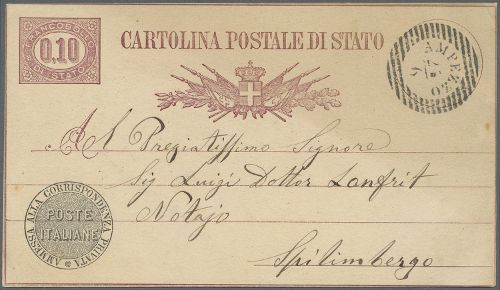 FRANCOBOLLO
0.10
DI STATO
CARTOLINA POSTALE DI STATO
AMPEZZO
Al Pregiatissimo Signore
Sig Luigi Dottor Lanfrit
Notajo
Spilimbergo
AMMESSA ALLA CORRISPONDENZA PRIVATA
POSTE
ITALIANE